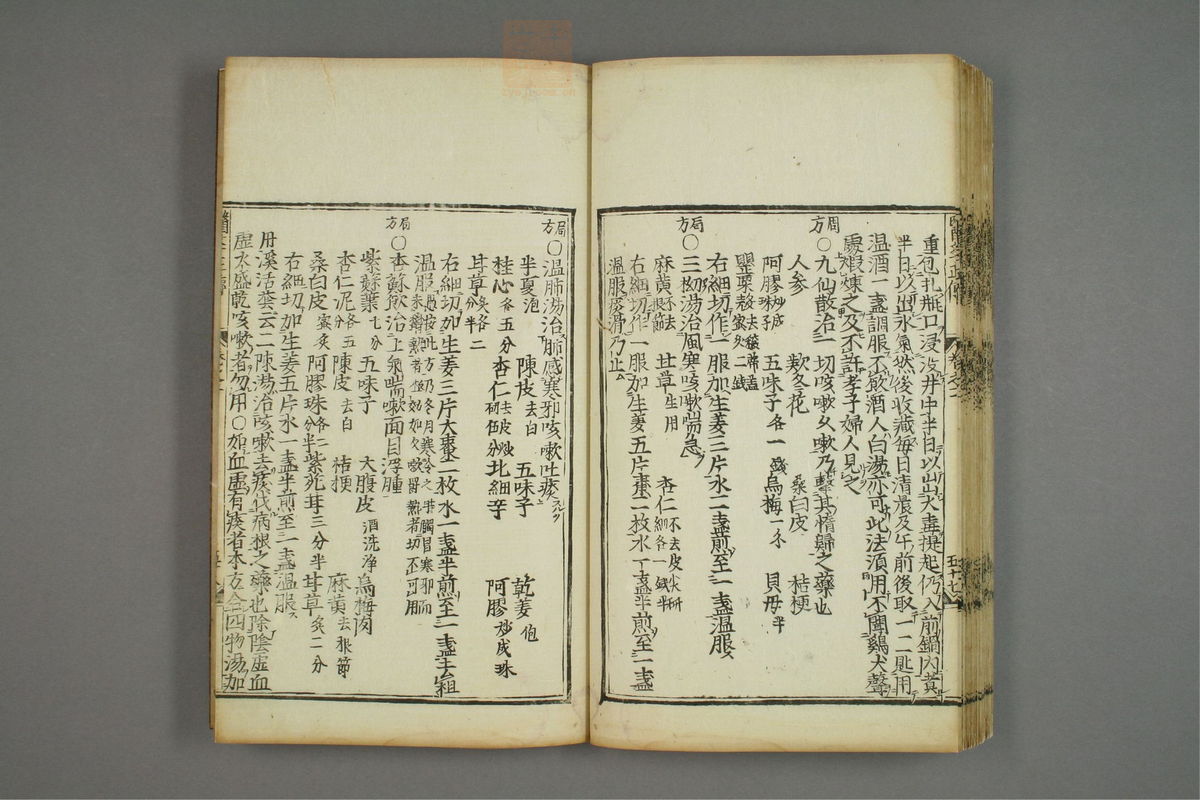 重包扎瓶口浸没井中半日以出火毒提起仍入前鍋内煮
半日以出水氣然後收藏每日清晨及午前後取一二匙用
温酒一盞調服不飲酒人白湯亦可此法須用不聞鷄犬聲
處煅煉之及不許孝子婦人見之
局方○九仙散治一切咳嗽久嗽乃擊其惰歸之藥也
人参 欵冬花 桑白皮 桔梗
阿膠炒成珠子 五味子各一錢 烏梅一个 貝母半
罌粟殼去穰蒂盖蜜炙二錢
右細切作一服加生姜三片水二盞煎至一盞温服
局方○三拗湯治風寒咳嗽喘急
麻黄不去根節 甘草生用 杏仁不去皮尖研細各一錢半
右細切作一服加生姜五片棗二枚水一盞半煎至一盞
温服痰滑乃止
局方○温肺湯治肺感寒邪咳嗽吐痰
半夏泡 陳皮去白 五味子 乾姜炮
桂心各五分 杏仁去皮炒研伍分 北細辛 阿膠炒成珠
甘草炙各二分半
右細切加生姜三片大棗二枚水一盞半煎至一盞去粗
温服
局方○杏蘇飲治上氣喘嗽面目浮腫
紫蘇葉七分 五味子 大腹皮酒洗浄 烏梅肉
杏仁泥各五分 陳皮去白 桔梗 麻黄去根節
桑白皮蜜炙 阿膠珠各二分半 紫菀茸三分半 甘草炙二分
右細切加生姜五片水一盞半煎至一盞温服
丹溪活套云二陳湯治咳嗽去痰伐病根之藥也除陰虚血
虚火盛乾咳嗽者勿用○如血虚有痰者本方合四物湯加